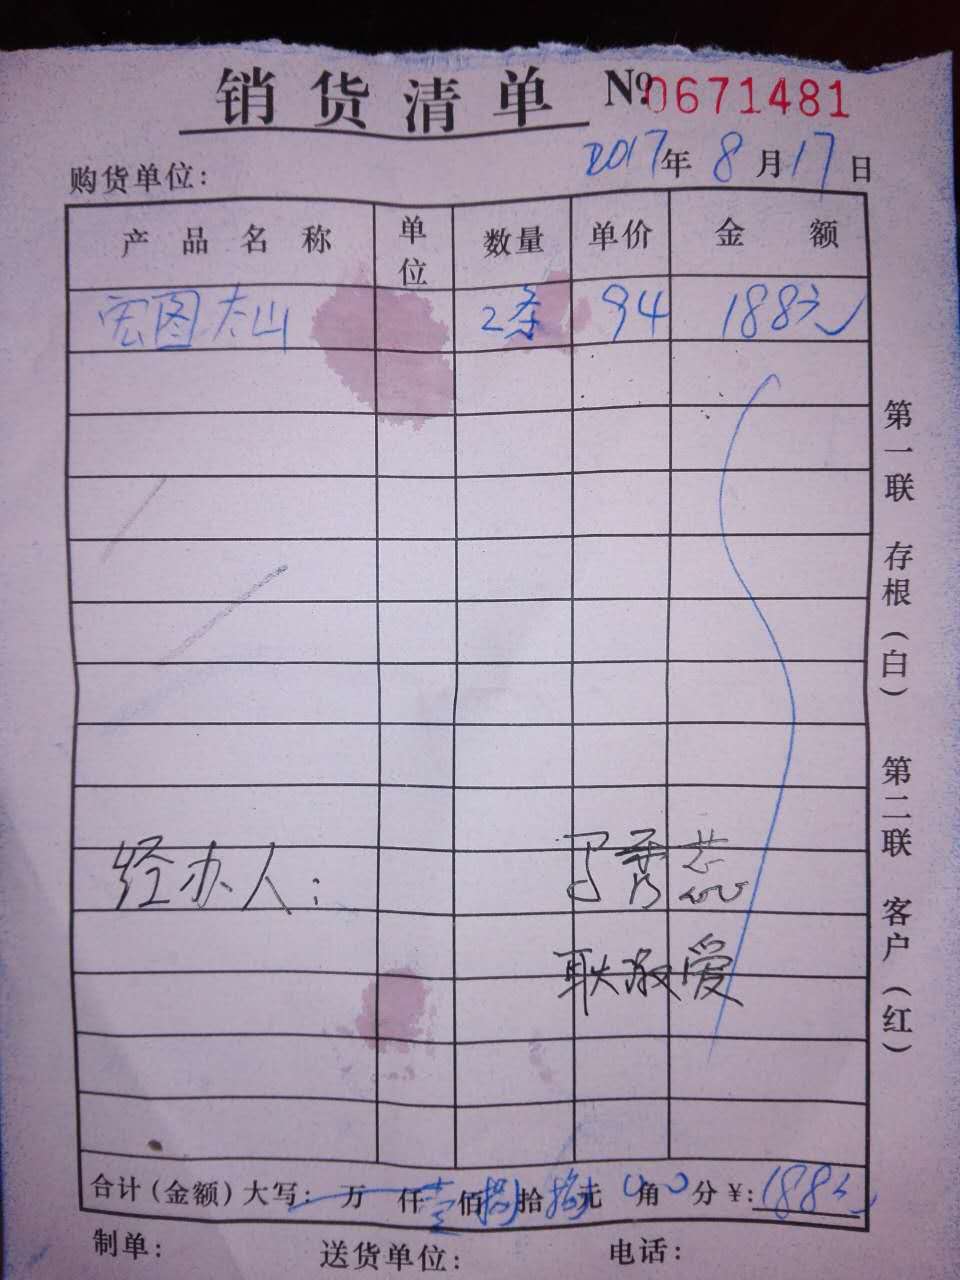 销货清单 № 0671481
购货单位: 2017年8月17日
产品名称 单位 数量 单价 金额
宏图泰山 2条 94 188元
第一联 存根(白) 第二联 客户(红)
经办人:
耿敬爱
合计(金额)大写: 万 仟 壹佰捌拾捌元 0角 0分 ¥: 188元
制单: 送货单位: 电话: